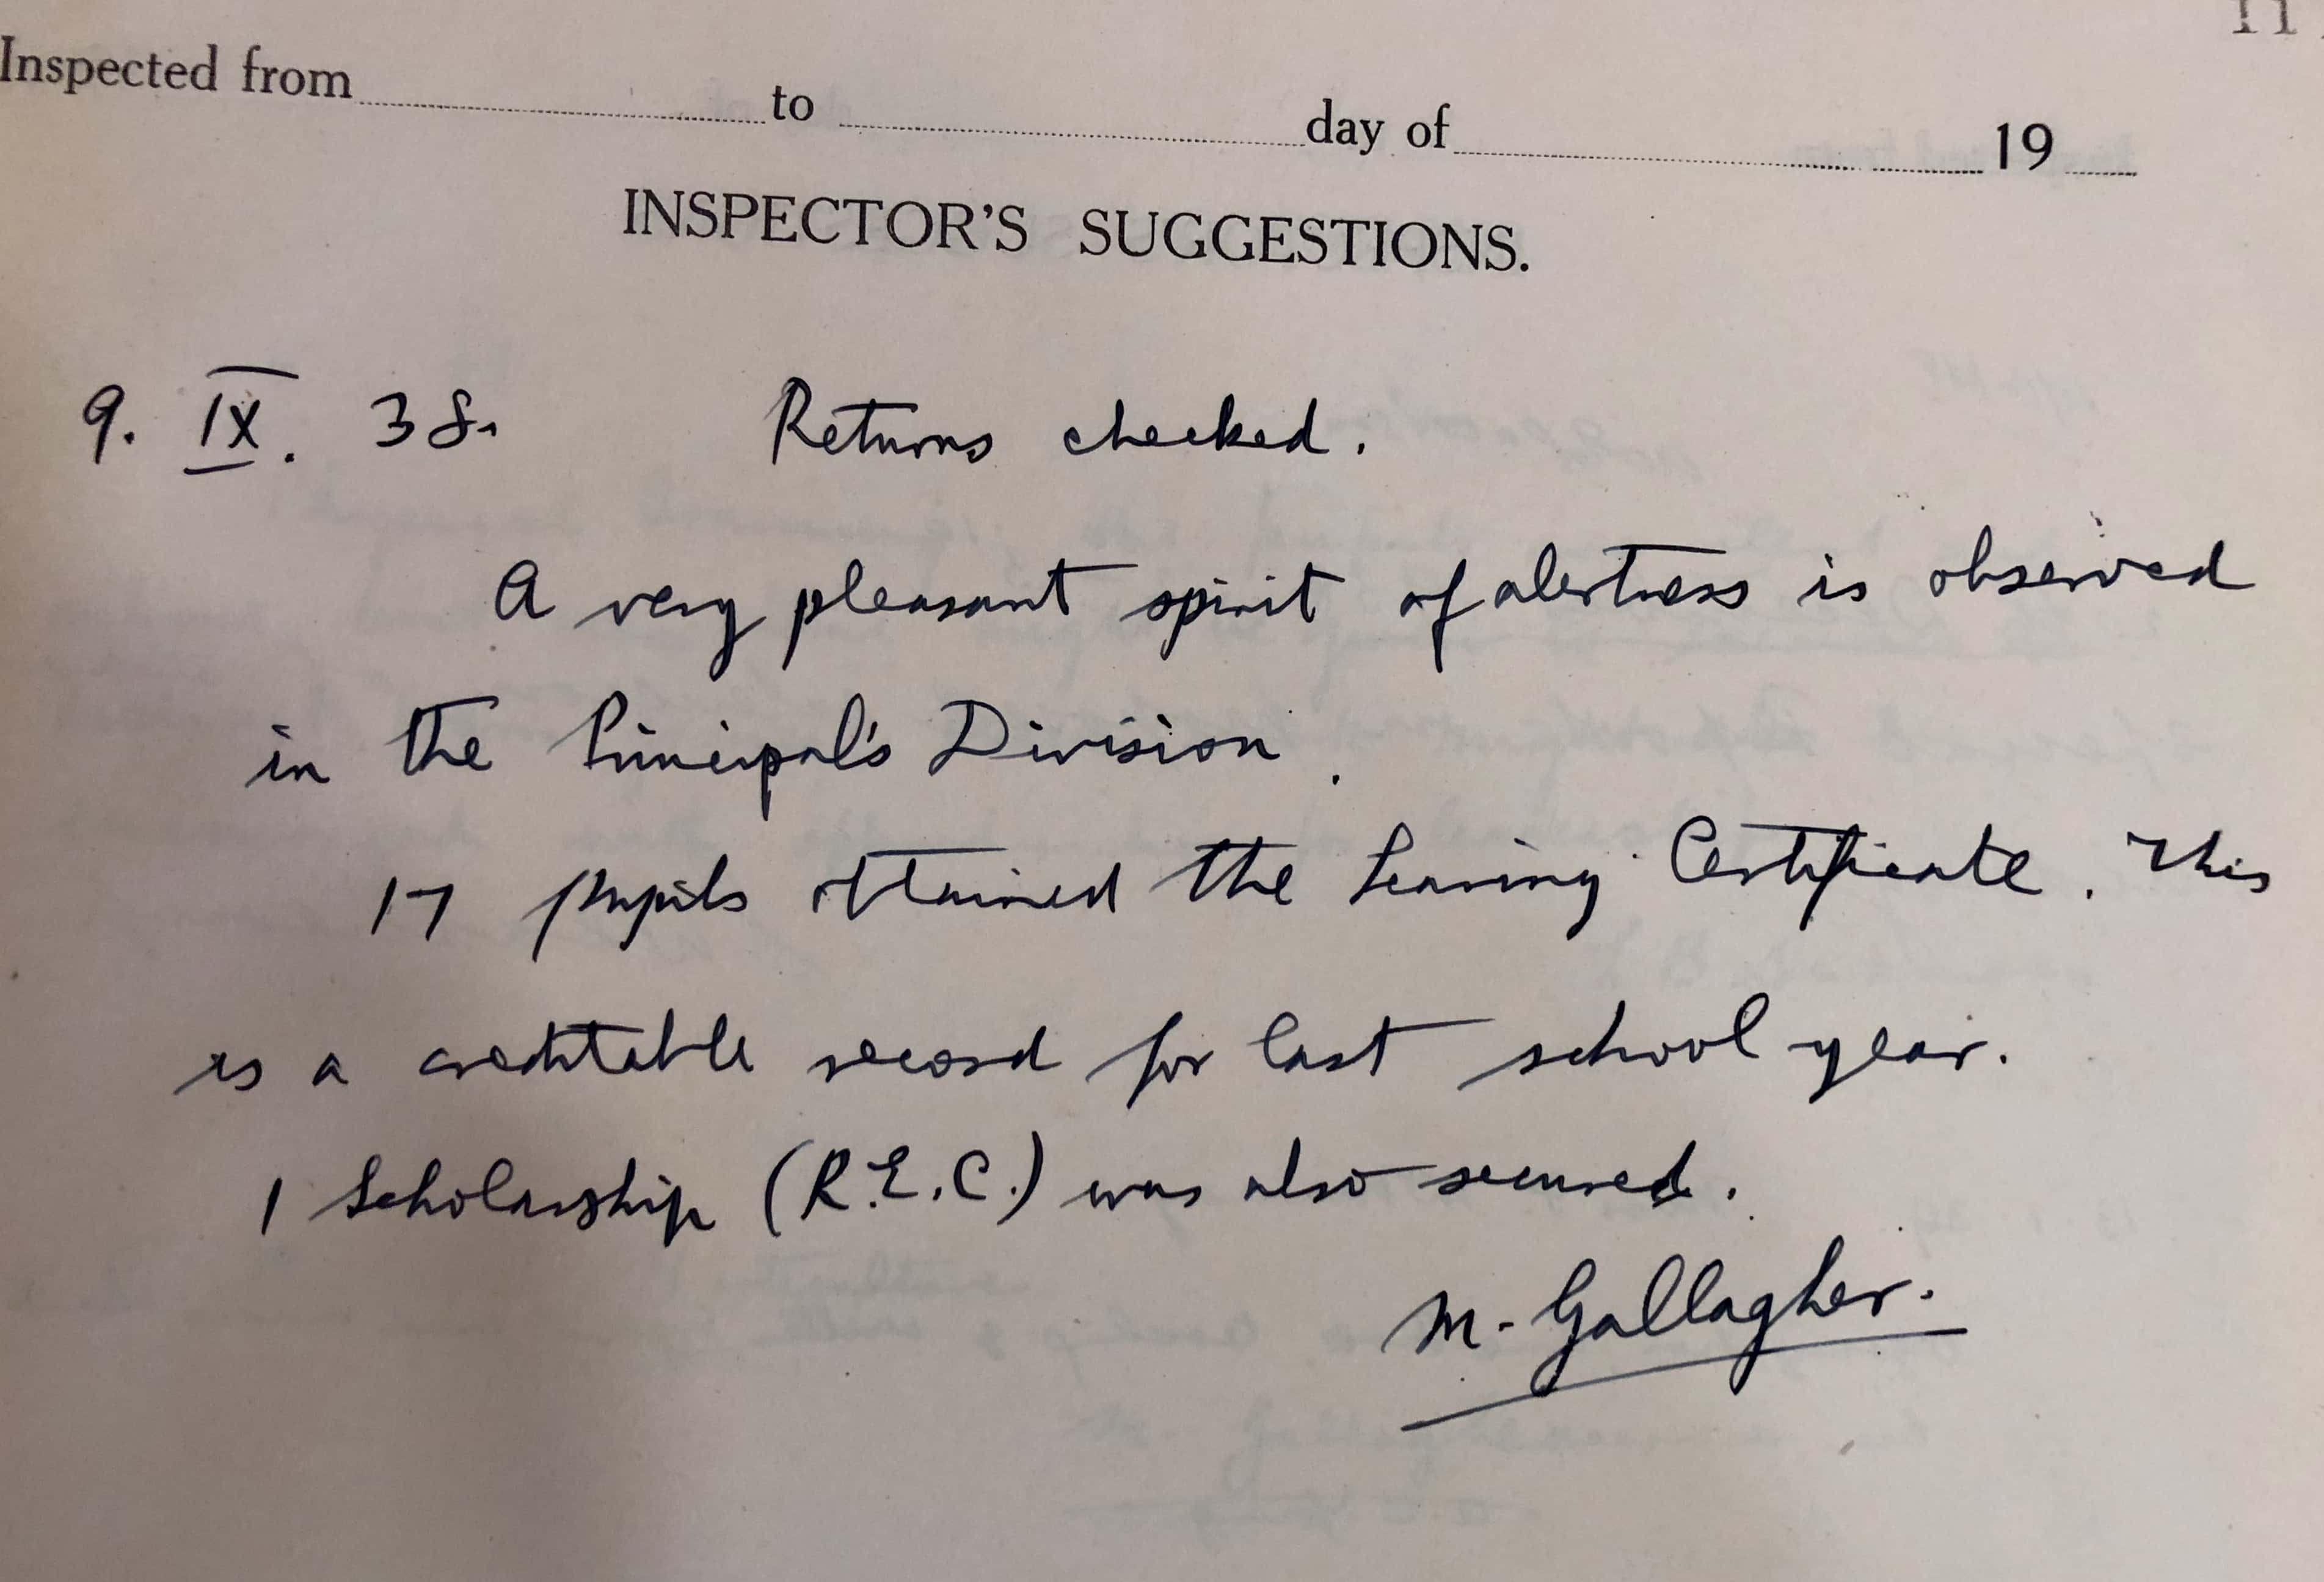 11
Inspected from to day of 19
INSPECTOR'S SUGGESTIONS.
9. IX. 38. Returns checked.
A very pleasant spirit of alertness is observed
in the Principal's Division.
17 pupils attained the Leaving Certificate. This
is a creditable record for last school year.
1 Scholarship (R.E.C.) was also secured.
M. Gallagher.